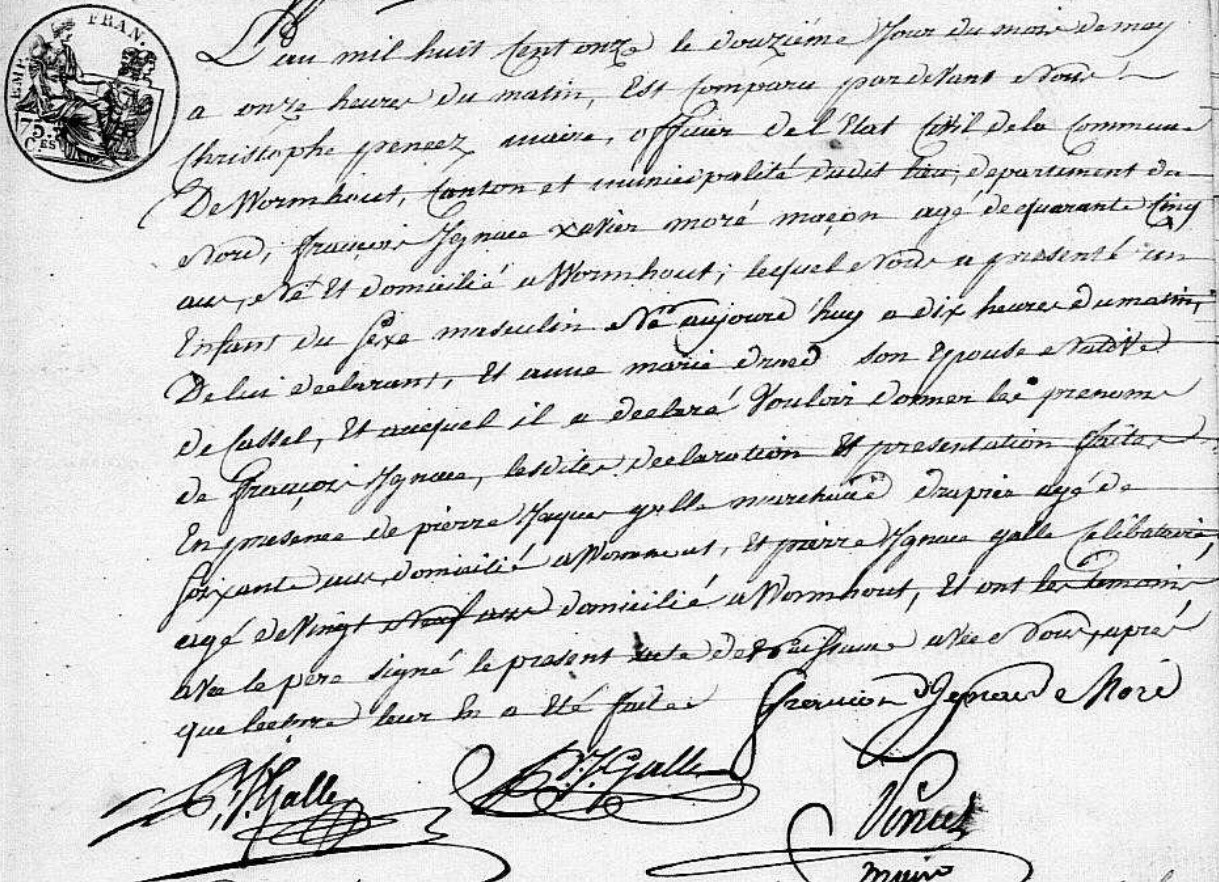 EMP. FRAN.
75.
CES
L'an mil huit Cent onze le douziéme Jour du mois de may
a onze heures du matin, Est Comparu pardevant Nous
Christophe maire, officier de l'Etat Civil de la Commune
De Wormhout, Canton et municipalité dudit lieu, departement du
Nord, françois Ignace xavier moré maçon agé de quarante Cinq
ans, Né Et Domicilié a Wormhout; lequel Nous a presenté un
Enfant du Sexe masculin Né aujourd'huy a dix heures du matin,
De lui declarant, Et anne marie son Epouse Native
de Cassel, Et auquel il a declaré Vouloir donner les prenoms
de françois Ignace, lesdites declaration Et presentation faites
En presence de pierre Jaques galle marchand drapier agé de
soixante ans, domicilié a Wormhout, Et pierre Ignace galle Celibataire,
agé de Vingt Neuf ans domicilié a Wormhout, Et ont les temoins
avec le pere signé le present acte de Naissance avec Nous, aprés
que lecture leur En a Eté faite
Ignace Moré
P. J. Galle P. J. Galle
maire